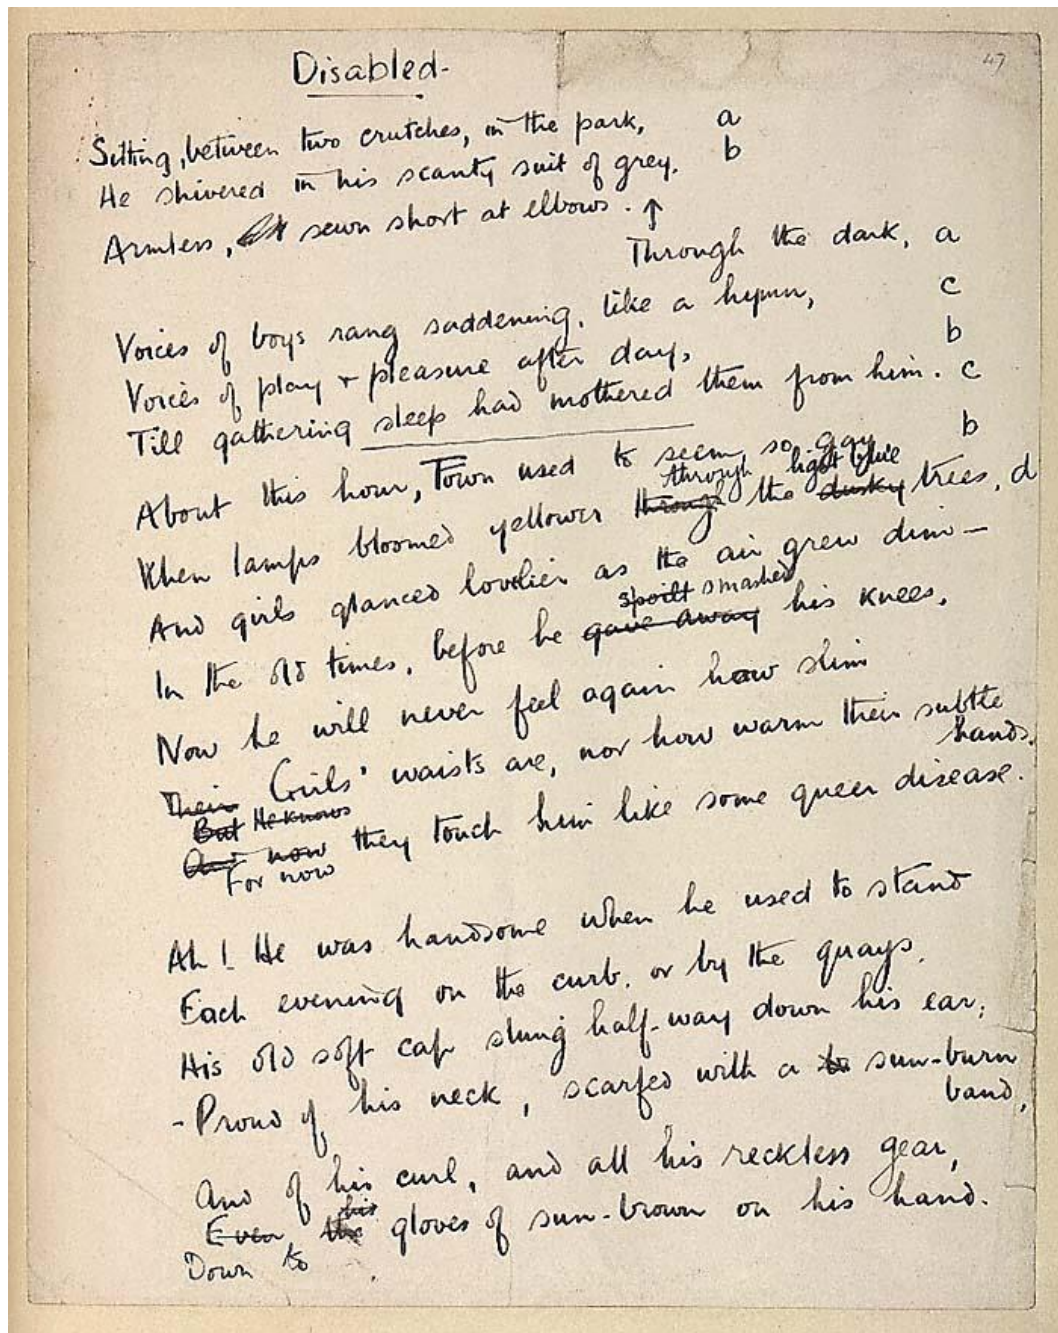 Disabled-
47
Sitting, between two crutches, in the park, a
He shivered in his scanty suit of grey, b
Armless, sewn short at elbows. ↑
Through the dark, a
Voices of boys rang saddening, like a hymn, c
Voices of play + pleasure after day, b
Till gathering sleep had mothered them from him. c
About this hour, Town used to seem so gay b
through light blue
When lamps bloomed yellower through the dusky trees, d
And girls glanced lovelier as the air grew dim—
spoilt smashed
In the old times, before he gave away his knees.
Now he will never feel again how slim
Their Girls' waists are, nor how warm their subtle
hands.
But He knows
And now they touch him like some queer disease.
For now
Ah! He was handsome when he used to stand
Each evening on the curb, or by the quays,
His old soft cap slung half-way down his ear;
- Proud of his neck, scarfed with a sun-burn
band,
And of his curl, and all his reckless gear,
his
Even the gloves of sun-brown on his hand.
Down to